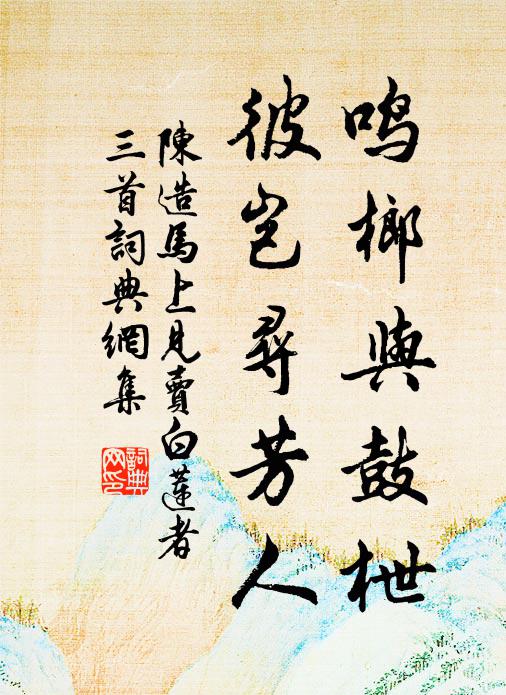 鳴榔與鼓枻
彼豈尋芳人
陳造馬上見賣白蓮者
三首詞典網集
詞典
网印